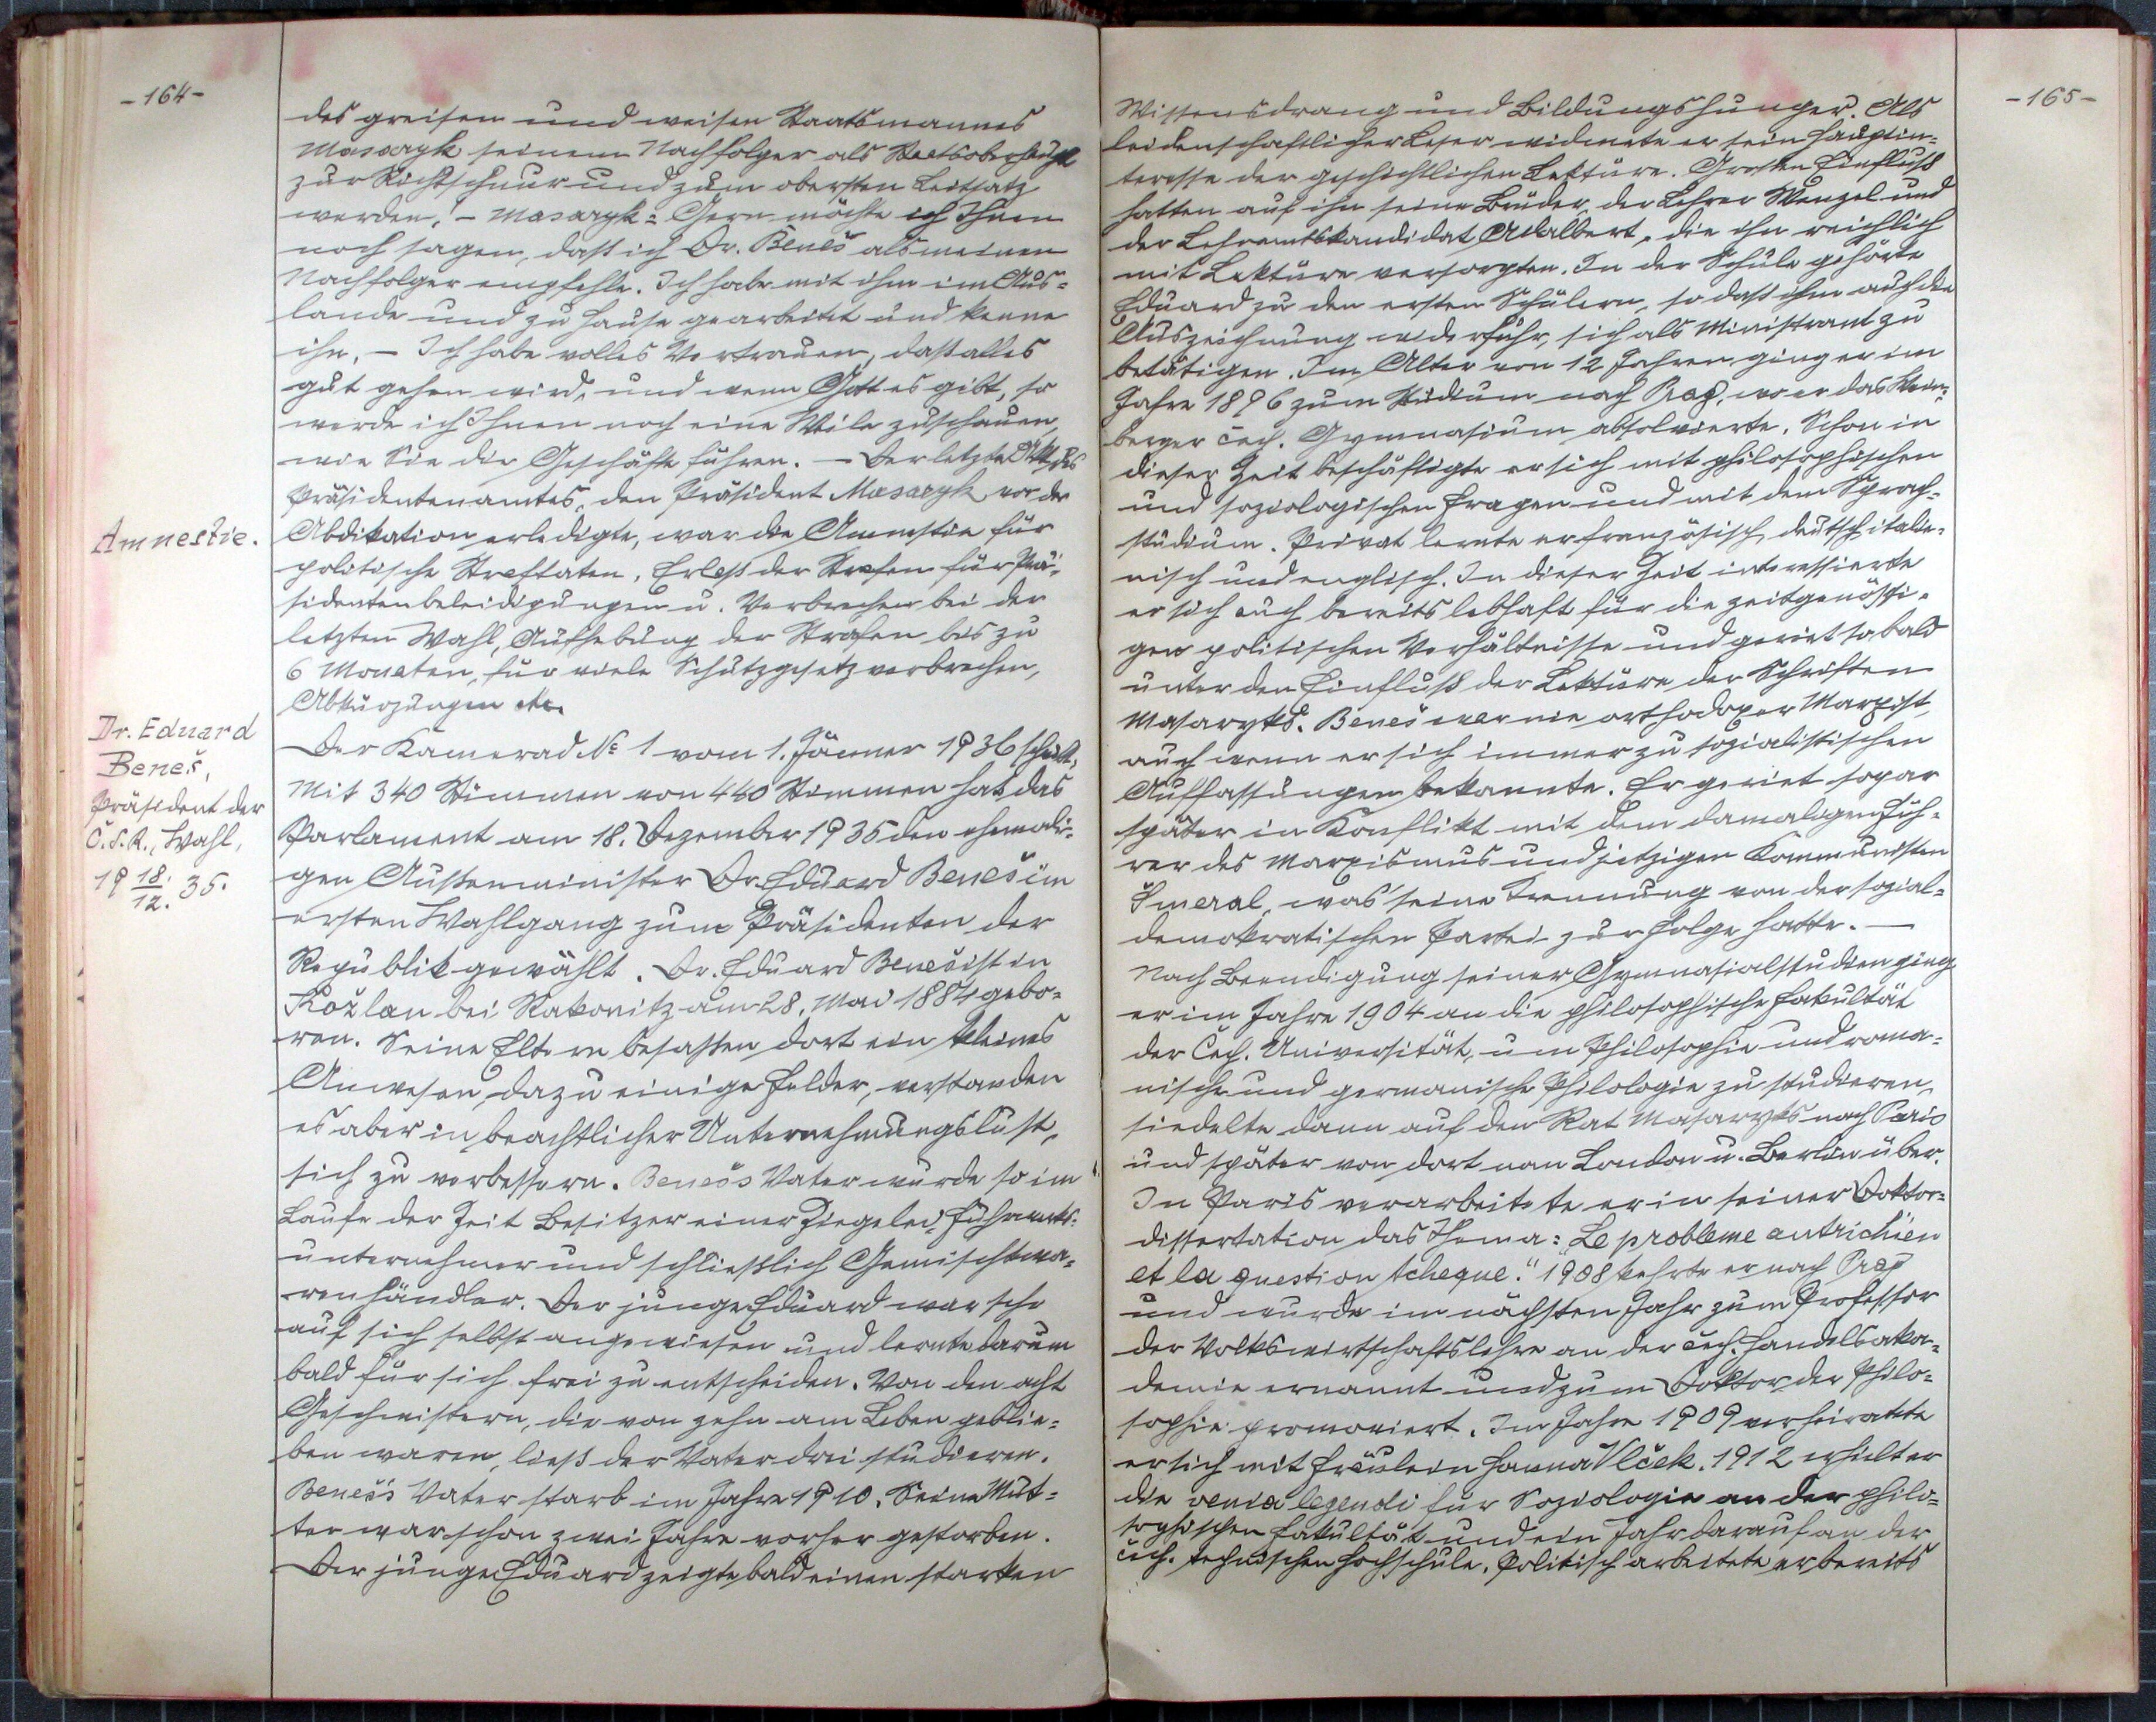 -164-
des greisen und weisen Staatsmannes
Masaryk seinem Nachfolger als Staatsoberhaupt
zur Richtschnur und zum obersten Leitsatz
werden. – Masaryk: Gern möchte ich Ihnen
noch sagen, daß ich Dr. Beneš als meinen
Nachfolger empfehle. Ich habe mit ihm im Aus=
lande und zu Hause gearbeitet und kenne
ihn. – Ich habe volles Vertrauen, daß alles
gut gehen wird, und wenn Gott es gibt, so
werde ich Ihnen noch eine Weile zuschauen,
wie Sie die Geschäfte führen. – Der letzte Akt des
Präsidentenamtes, den Präsident Masaryk vor der
Amnestie.
Abdikation erledigte, war die Amnestie für
politische Straftaten, Erlaß der Strafen für Prä=
sidentenbeleidigungen u. Verbrechen bei der
letzten Wahl, Aufhebung der Strafen bis zu
6 Monaten, für viele Schutzgesetzverbrechen,
Abkürzungen etc.
Dr. Eduard
Beneš,
Präsident der
Č.S.R., Wahl,
19 18./12. 35.
Der Kamerad № 1 vom 1. Jänner 1936 schreibt,
Mit 340 Stimmen von 440 Stimmen hat das
Parlament am 18. Dezember 1935 den ehemali=
gen Außenminister Dr. Eduard Beneš im
ersten Wahlgang zum Präsidenten der
Republik gewählt. Dr. Eduard Beneš ist in
Kožlan bei Rakonitz am 28. Mai 1884 gebo=
ren. Seine Eltern besaßen dort ein kleines
Anwesen, dazu einige Felder, verstanden
es aber in beachtlicher Unternehmungslust,
sich zu verbessern. Beneš's Vater wurde so im
Laufe der Zeit Besitzer einer Ziegelei,
unternehmer und schließlich Gemischtwa=
renhändler. Der junge Eduard war sehr
auf sich selbst angewiesen und lernte darum
bald für sich frei zu entscheiden. Von den acht
Geschwistern, die von zehn am Leben geblie=
ben waren, ließ der Vater drei studieren.
Beneš's Vater starb im Jahre 1910. Seine Mut=
ter war schon zwei Jahre vorher gestorben.
Der junge Eduard zeigte bald einen starken
-165-
Wissensdrang und Bildungshunger. Als
leidenschaftlicher Leser widmete er sein Hauptin=
teresse der geschichtlichen Lektüre. Großen Einfluß
hatten auf ihn seine Brüder, der Lehrer Wenzel und
der Lehramtskandidat Adalbert, die ihn reichlich
mit Lektüre versorgten. In der Schule gehörte
Eduard zu den ersten Schülern, so daß ihm auch die
Auszeichnung widerfuhr, sich als Ministrant zu
betätigen. Im Alter von 12 Jahren ging er im
Jahre 1896 zum Studium nach Prag, wo er das Wein=
berger čech. Gymnasium absolvierte. Schon in
dieser Zeit beschäftigte er sich mit philosophischen
und soziologischen Fragen und mit dem Sprach=
studium. Privat lernte er französisch, deutsch, italie=
nisch und englisch. In dieser Zeit interessierte
er sich auch bereits lebhaft für die zeitgenössi=
gen politischen Verhältnisse und geriet so bald
unter den Einfluß der Lektüre der Schriften
Masaryks. Beneš war nie orthodoxer Marxist,
auch wenn er sich immer zu sozialistischen
Auffassungen bekannte. Er geriet sogar
später in Konflikt mit dem damaligen Füh=
rer des Marxismus und jetzigen Kommunisten
Šmeral, was seine Trennung von der sozial=
demokratischen Partei zur Folge hatte. –
Nach Beendigung seiner Gymnasialstudien ging
er im Jahre 1904 an die philosophische Fakultät
der Čech. Universität, um Philosophie und roma=
nische und germanische Philologie zu studieren,
siedelte dann auf den Rat Masaryks nach Paris
und später von dort nan London u. Berlin über.
In Paris verarbeitete er in seiner Doktor=
dissertation das Thema: „Le probleme autrichien
et la question tcheque." 1908 kehrte er nach Prag
und wurde im nächsten Jahr zum Professor
der Volkswirtschaftslehre an der čech. Handelsaka=
demie ernannt und zum Doktor der Philo=
sophie promoviert. Im Jahre 1909 verheiratete
er sich mit Fräulein Hanna Vlček. 1912 erhielt er
die venia legendi für Soziologie an der philo=
sophischen Fakultät und ein Jahr darauf an der
čech. technischen Hochschule. Politisch arbeitete er bereits